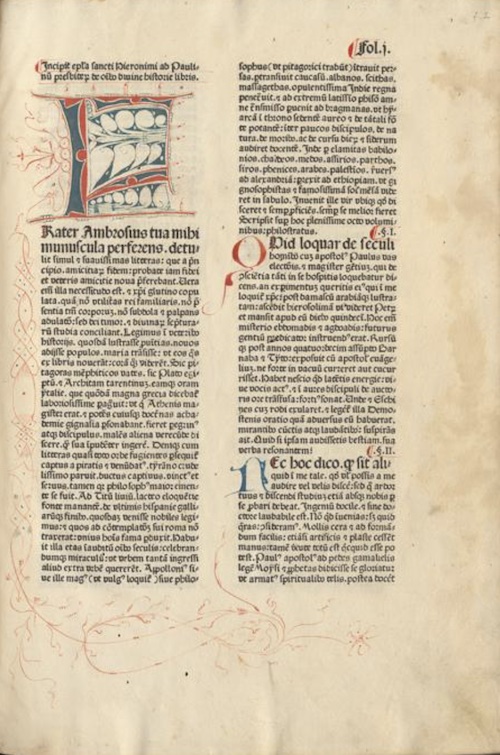 Fol.j.
Incipit epła sancti Hieronimi ad Pauli-
nũ presbiteꝝ de oĩbꝰ diuine historie libris.
Frater Ambrosius tua mihi
munuscula perferens. detu-
lit simul ⁊ suauissimas litteras: que a prin
cipio. amiciciaꝝ fidem: probate iam fidei
et veteris amicicie noua
Uera
em̃ illa necessitudo est. ⁊ xp̃i glutino copu
lata. quã nõ vtilitas rei familiaris. nõ
sentia tm̃ corpoꝝ. nõ subdola ⁊ palpans
adulatio. sed dei timor. ⁊ diuinaꝝ scriptura-
rũ studia conciliant. Legimus
historijs. quosdã lustrasse puincias. nouos
adijsse populos. maria trãsisse: vt eos qͦs
ex libris nouerãt: corã qͦꝫ viderẽt. Sic pi-
tagoras mẽphiticos vates. sic Plato egi-
ptũ. ⁊ Architam tarentinũ. eamqꝫ oram
ytalie. que quõdã magna grecia dicebat
laboriosissime
vt qui Athenis ma-
gister erat. ⁊ potẽs
doctrinas acha-
demie gignasia psonabant. fieret pegrinꝰ
atqꝫ discipulus. malẽs aliena verecũde di
scere. q̃ sua
ingerere. Deniqꝫ cum
litteras quasi toto orbe fugientes
captus a piratis ⁊ venũdatꝰ. tyrãno crude
lissimo paruit. ductus captiuus. vinctꝰ et
seruus. tamen qꝛ philosophꝰ maior emen-
te se fuit. Ad Titũ liuiũ. lacteo eloquẽtie
fonte manantẽ. de vltimis hispanie galli-
arũqꝫ finibꝰ. quosdaꝫ venisse nobiles legi-
mus: ⁊ quos ad cõtemplatõẽ sui roma nõ
traxerat: vnius hoĩs fama pduxit. Habu-
it illa etas
oĩbꝰ seculis: celebran-
dumqꝫ miraculũ: vt vrbem tantã ingressi
aliud extra vrbẽ quererẽt. Appollonꝰ si-
ue ille magꝰ (vt vulgꝰ loquit̃) siue philo-
sophus (vt pitagorici tradũt) ĩtrauit per-
sas. ptransiuit caucasũ. albanos. scithas.
massagethas. opulentissima Indie regna
penetrauit. ⁊ ad extremũ latissimo phison am-
ne trãsmisso puenit ad bragmanas. vt hy-
arcã ĩ throno sedentẽ aureo ⁊ de tãtali fõ
te potantẽ: iter paucos discipulos. de na
tura. de moribꝰ. ac de cursu dieꝝ ⁊ siderum
audiret docentẽ. Inde p elamitas babilo-
nios. chaldeos. medos. assirios. parthos.
siros. phenices. arabes. palestinos. reuersꝰ
ad alexandriã: prexit ad ethiopiam. vt gi
gnosophistas ⁊ famosissimã solis mẽsã vide
ret in sabulo. Inuenit ille vir vbiqꝫ qͦd di
sceret ⁊ semp pficiẽs. semp se melior fieret
Scripsit sup hoc plenissime octo volumi-
nibus: philostratus.
§.I.
Quid loquar de seculi
hominibꝰ cũ apostolꝰ Paulus vas
electõis. ⁊ magister gẽtiũ. qui de
cõsciẽtia tãti in se hospitis loquebatur di-
cens. an expimentuꝫ queritis eiꝰ qui ĩ me
loquit̃ xpc: post damascũ arabiãqꝫ lustra-
tam: ascẽdit hierosolimã vt videret Petrũ
et mansit apud eũ diebꝰ quindecĩ. Hoc em̃
misterio ebdomatis ⁊ ogdoadis: futurus
gentiũ predicator: instruendꝰ erat. Rursũ
qꝫ post annos quatuordecim assũpto Bar
naba ⁊ Tyto: exposuit cũ apostolis euãge-
liũ. ne forte in vacuũ curreret aut cucur
risset. Habet nescio qͦd latẽtis energie: vi-
ue vocis actꝰ. ⁊ ĩ aures discipuli de aucto-
ris ore trãsfusa: fortiꝰ sonat. Unde ⁊ Eschi
nes cuꝫ rodi exularet. ⁊ legeret illa Demo-
stenis oratio quã aduersus eũ habuerat.
mirantibꝰ cũctis atqꝫ laudãtibꝰ: suspirãs
ait. Quid si ipsam audissetis bestiam. sua
verba resonantem?
§.II.
Nec hoc dico. qͣ sit ali-
quid ĩ me tale. qͦd vel possis a me
audire vel velis discere: sed qͦ ardor
tuus ⁊ discendi studiũ: etiã absqꝫ nobis p
se pbari debeat. Ingeniũ docile. ⁊ sine do-
ctore laudabile est. Nõ qͦd ĩuenias: sꝫ quid
queras: ꝯsideramꝰ. Mollis cera ⁊ ad forman-
dum facilis: etiãsi artificis ⁊ plaste cesset
manus: tamẽ
totũ est quicquid esse po
test. Paulꝰ apostolꝰ ad pedes gamalielis
legẽ Moysi ⁊ prophetas didicisse se gloriatur:
vt armatꝰ spiritualibꝰ telis. postea docẽt